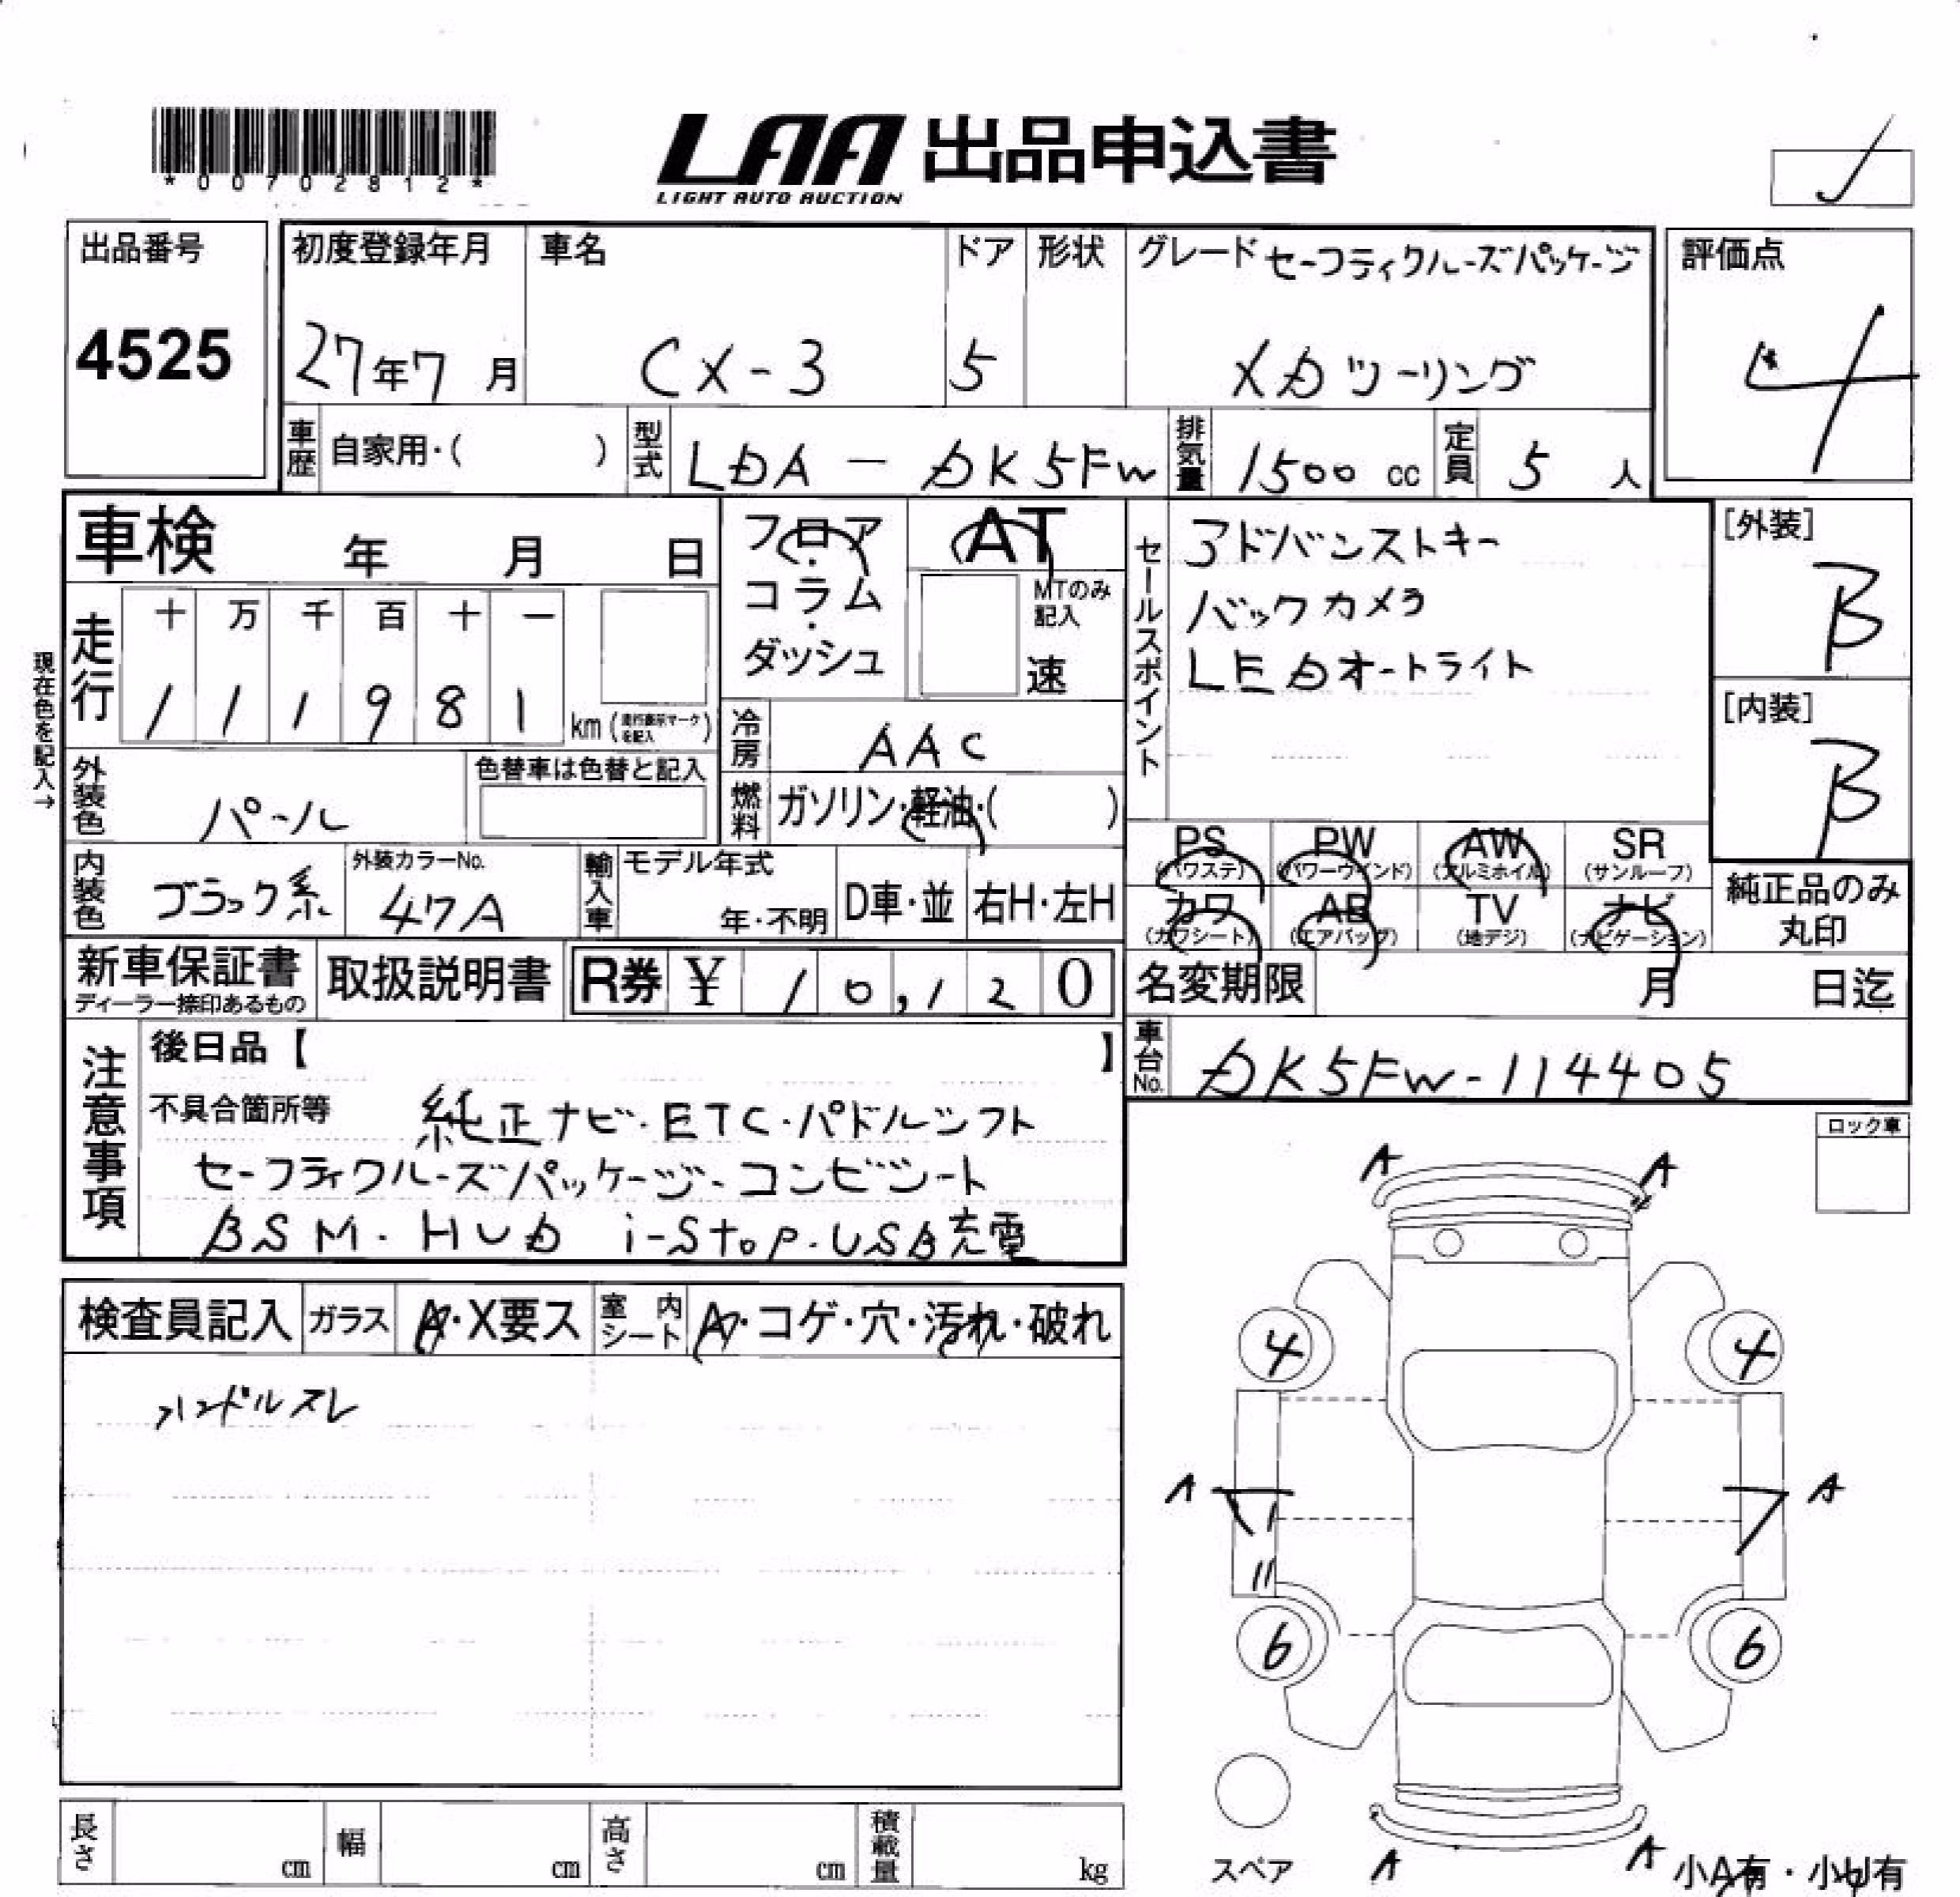 *00702812*
LAA 出品申込書
LIGHT AUTO AUCTION
出品番号
4525
初度登録年月
27年7月
車名
CX-3
ドア
5
形状
グレード セーフティクルーズパッケージ
XDツーリング
評価点
4
車歴
自家用・( )
型式
LDA-DK5FW
排気量
1500 cc
定員
5 人
車検 年 月 日
フロア・
コラム・
ダッシュ
AT
MTのみ
記入
速
セールスポイント
アドバンストキー
バックカメラ
LEDオートライト
[外装]
B
[内装]
B
現在色を記入→
走行
十 万 千 百 十 一
1 1 1 9 8 1
km (走行表示マークを記入)
冷房
AAC
外装色
パール
色替車は色替と記入
燃料
ガソリン・軽油・( )
内装色
ブラック系
外装カラーNo.
47A
輸入車
モデル年式
年・不明
D車・並
右H・左H
PS
(パワステ)
PW
(パワーウインド)
AW
(アルミホイル)
SR
(サンルーフ)
カワ
(カワシート)
AB
(エアバッグ)
TV
(地デジ)
ナビ
(ナビゲーション)
純正品のみ
丸印
新車保証書
ディーラー捺印あるもの
取扱説明書
R券 ¥ 10,120
名変期限 月 日迄
車台No.
DK5FW-114405
注意事項
後日品【 】
不具合箇所等 純正ナビ・ETC・パドルシフト
セーフティクルーズパッケージ・コンビシート
BSM・HUD i-stop・USB充電
ロック車
検査員記入
ガラス
A・X要ス
室内シート
A・コゲ・穴・汚れ・破れ
ハンドルスレ
A A
4 4
A A
6 6
スペア
A A
小A有・小U有
長さ cm
幅 cm
高さ cm
積載量 kg